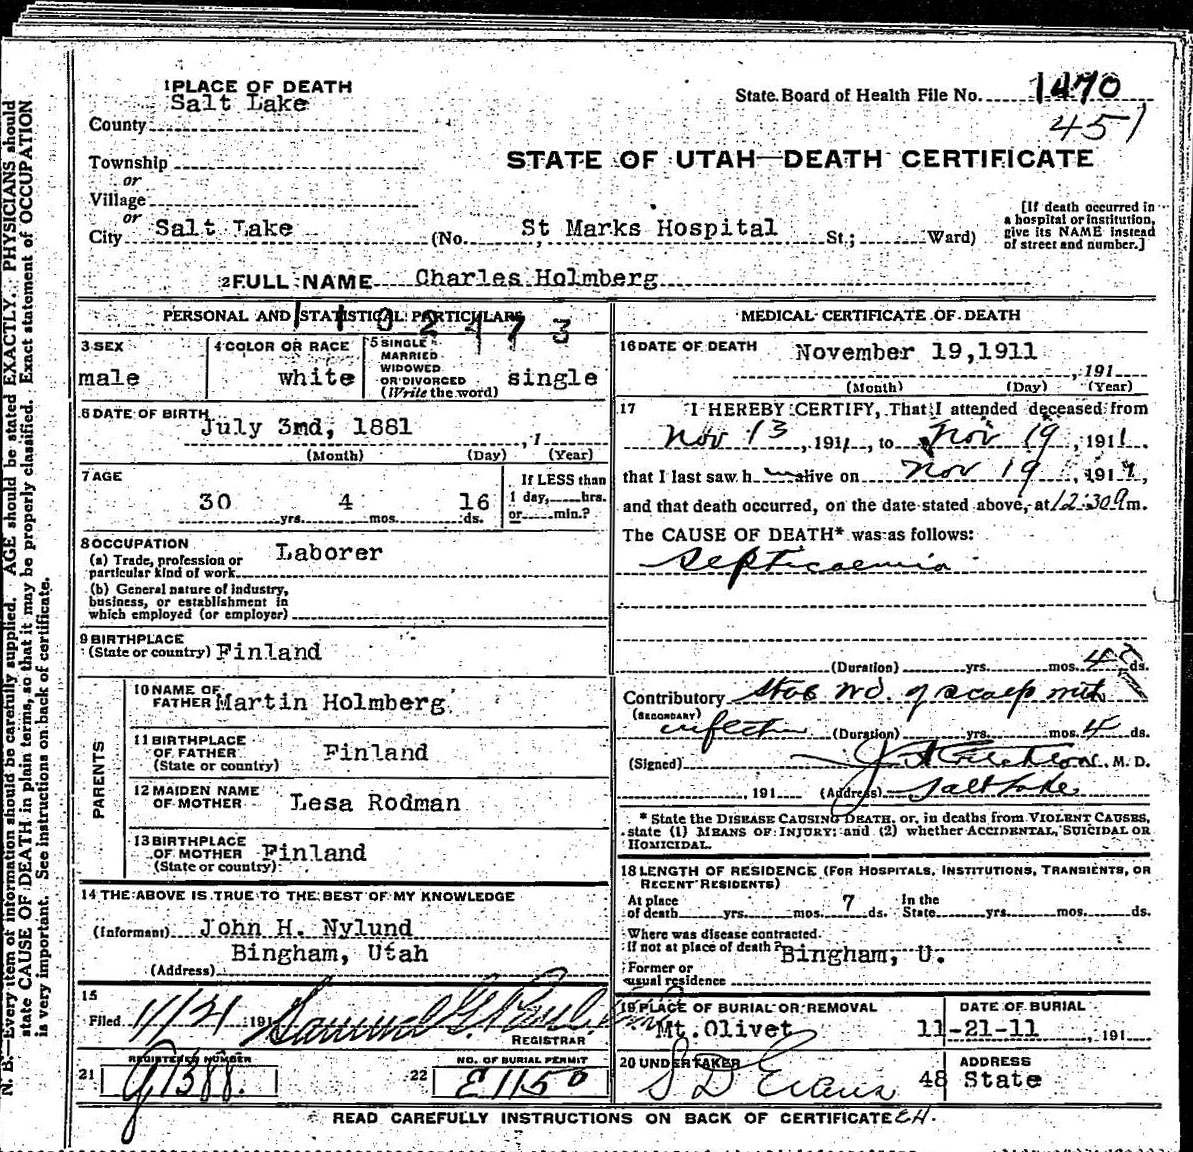 1 PLACE OF DEATH
Salt Lake
County
State Board of Health File No. 1470
451
Township
or
Village
or
City Salt Lake (No. St Marks Hospital St.; Ward)
STATE OF UTAH—DEATH CERTIFICATE
[If death occurred in
a hospital or institution,
give its NAME instead
of street and number.]
2 FULL NAME Charles Holmberg
PERSONAL AND STATISTICAL PARTICULARS
3 SEX
male
4 COLOR OR RACE
white
5 SINGLE
MARRIED
WIDOWED
OR DIVORCED
(Write the word)
single
6 DATE OF BIRTH
July 3rd, 1881 , 1
(Month) (Day) (Year)
7 AGE
30 yrs. 4 mos. 16 ds.
If LESS than
1 day, hrs.
or min.?
8 OCCUPATION
(a) Trade, profession or
particular kind of work Laborer
(b) General nature of industry,
business, or establishment in
which employed (or employer)
9 BIRTHPLACE
(State or country) Finland
PARENTS
10 NAME OF
FATHER Martin Holmberg
11 BIRTHPLACE
OF FATHER
(State or country) Finland
12 MAIDEN NAME
OF MOTHER Lesa Rodman
13 BIRTHPLACE
OF MOTHER
(State or country) Finland
14 THE ABOVE IS TRUE TO THE BEST OF MY KNOWLEDGE
(Informant) John H. Nylund
Bingham, Utah
(Address)
15
Filed 11/21 191 Samuel G.
REGISTRAR
REGISTERED NUMBER
21 G1388
NO. OF BURIAL PERMIT
22 E1150
MEDICAL CERTIFICATE OF DEATH
16 DATE OF DEATH
November 19, 1911
, 191
(Month) (Day) (Year)
17 I HEREBY CERTIFY, That I attended deceased from
Nov 13, 1911, to Nov 19, 1911
that I last saw h alive on Nov 19, 1911,
and that death occurred, on the date stated above, at 12:30 m.
The CAUSE OF DEATH* was as follows:
Septicaemia
(Duration) yrs. mos. 4 ds.
Contributory Stab wd. of scalp with
(SECONDARY)
infection (Duration) yrs. mos. 4 ds.
(Signed) M. D.
, 191 (Address) Salt Lake
* State the DISEASE CAUSING DEATH, or, in deaths from VIOLENT CAUSES,
state (1) MEANS OF INJURY; and (2) whether ACCIDENTAL, SUICIDAL OR
HOMICIDAL.
18 LENGTH OF RESIDENCE (FOR HOSPITALS, INSTITUTIONS, TRANSIENTS, OR
RECENT RESIDENTS)
At place
of death yrs. mos. 7 ds. In the
State yrs. mos. ds.
Where was disease contracted
if not at place of death? Bingham, U.
Former or
usual residence
19 PLACE OF BURIAL OR REMOVAL
Mt. Olivet
DATE OF BURIAL
11-21-11 , 191
20 UNDERTAKER
S D Evans
ADDRESS
48 State
READ CAREFULLY INSTRUCTIONS ON BACK OF CERTIFICATE
N. B.—Every item of information should be carefully supplied. AGE should be stated EXACTLY. PHYSICIANS should
state CAUSE OF DEATH in plain terms, so that it may be properly classified. Exact statement of OCCUPATION
is very important. See instructions on back of certificate.